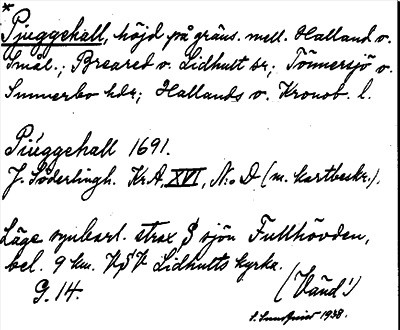 *
Pjuggehall, höjd på gräns. mell. Halland o.
Smål.; Breared o. Lidhult sr; Tönnersjö o.
Sunnerbo hdr; Hallands o. Kronob. l.
Piuggehall 1691.
J. Söderlingh. KrA, XVI, N:o D (m. kartbeskr.).
Läge synbart. strax S sjön Fullhövden,
bel. 9 km. VSV Lidhults kyrka.
G. 14.
(Vänd!)
1938.